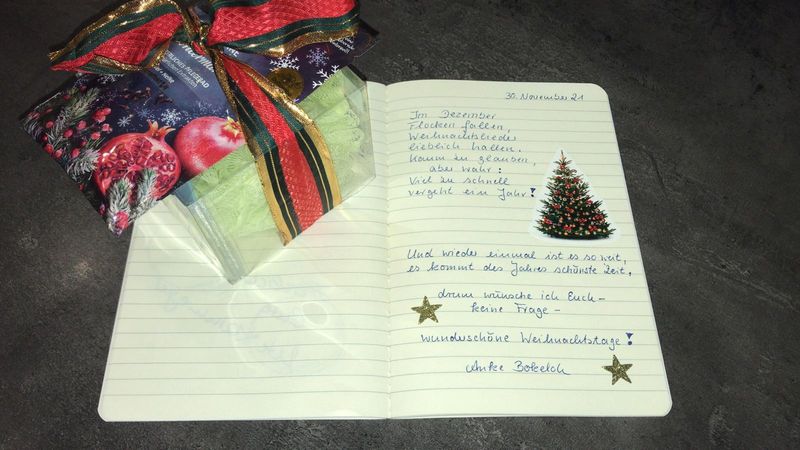 30. November 21
Im Dezember
Flocken fallen,
Weihnachtslieder
lieblich hallen.
Kaum zu glauben,
aber wahr:
Viel zu schnell
vergeht ein Jahr!
Und wieder einmal ist es so weit,
es kommt des Jahres schönste Zeit,
drum wünsche ich Euch –
keine Frage –
wunderschöne Weihnachtstage!
Anke Bokeloh